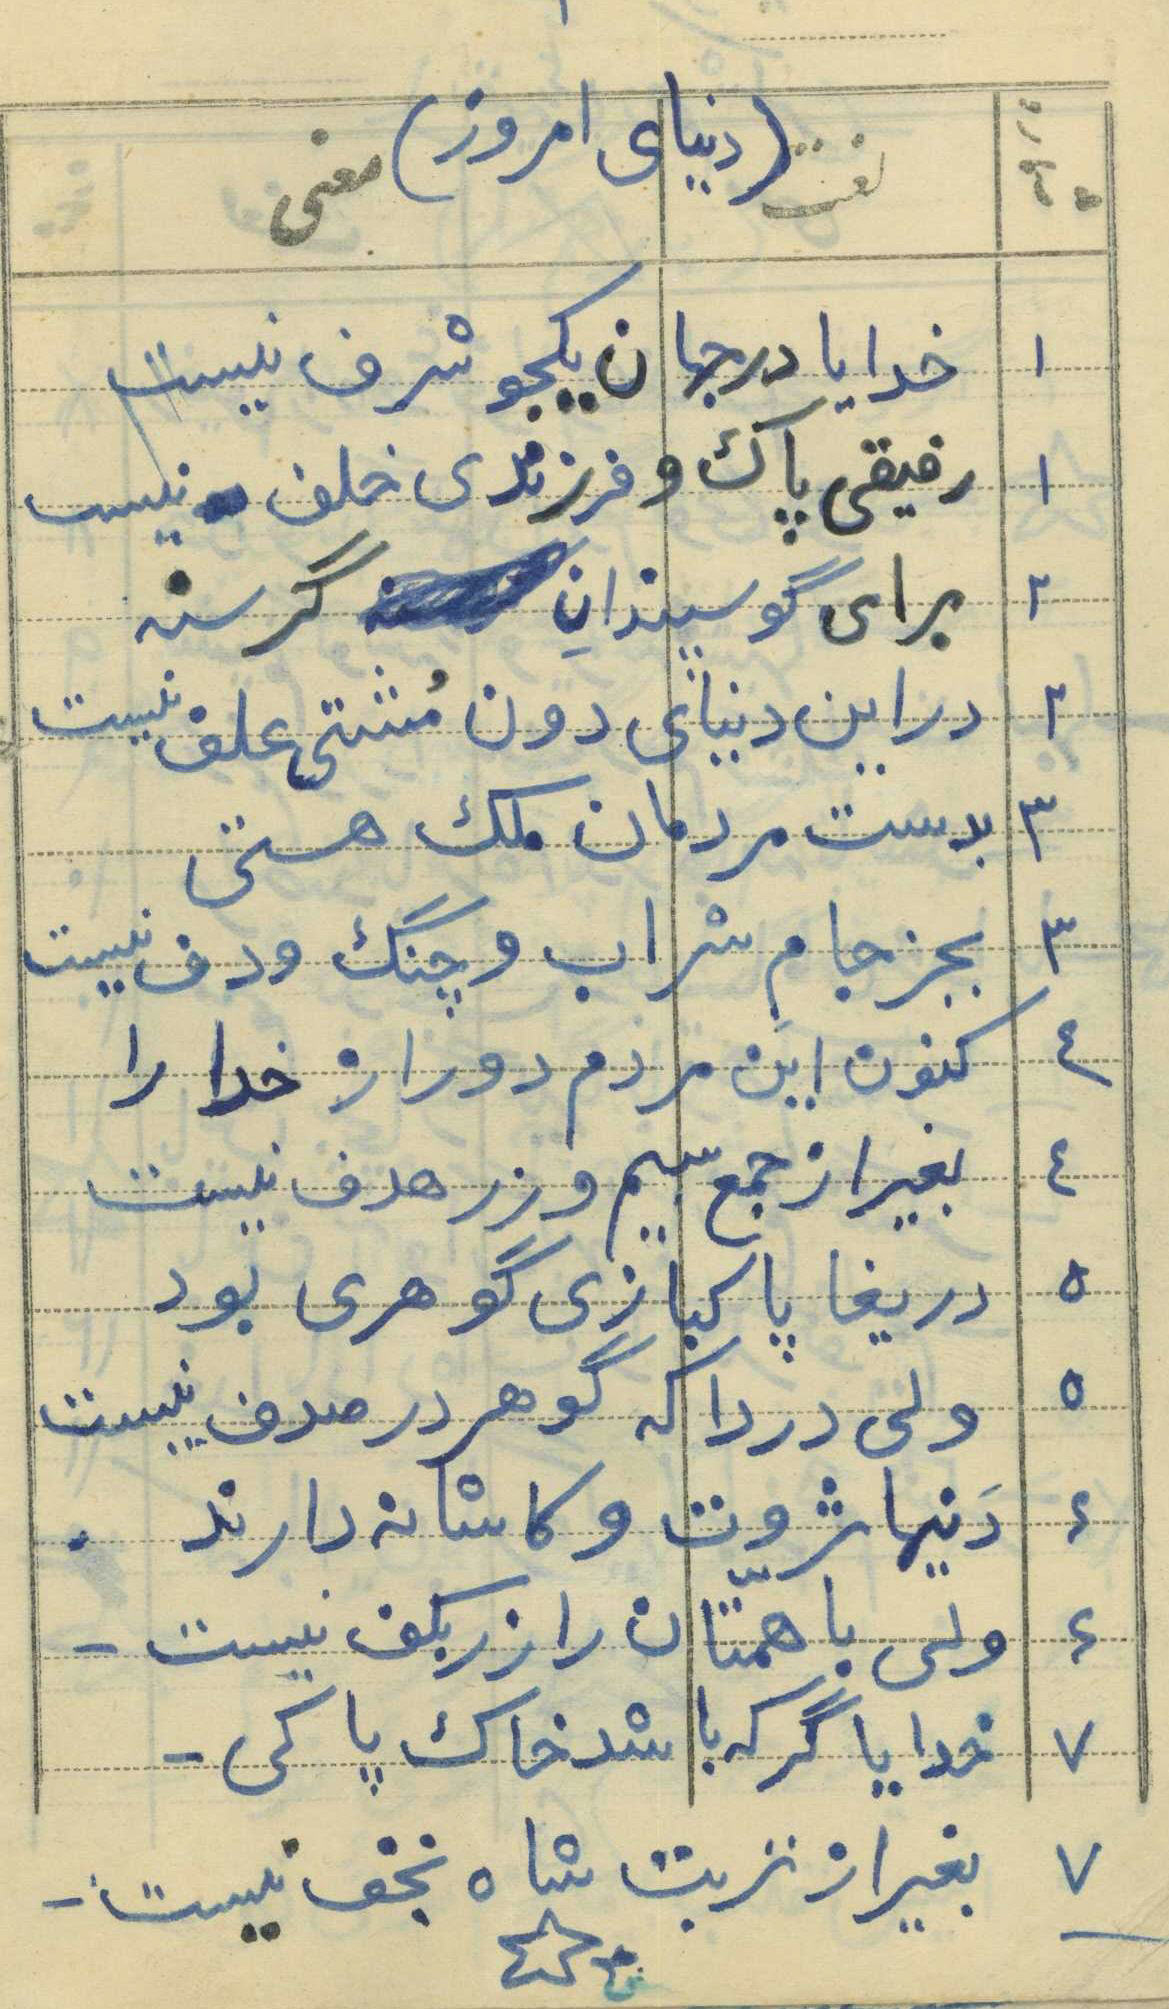 شماره لغت (دنیای امروز) معنی
۱ خدایا در جهان یکجو شرف نیست
۱ رفیقی پاک و فرزندی خلف نیست
۲ برای گوسپندانِ گرسنه
۲ در این دنیای دون مُشتی علف نیست
۳ بدست مردمان ملک هستی
۳ بجز جامِ شراب و چنگ و دف نیست
٤ کنون این مردم دور از خدا را
٤ بغیر از جمع سیم و زر هدف نیست
۵ دریغا پاکبازی گوهری بود
۵ ولی دردا که گوهر در صدف نیست
۶ دَنیها ثروت و کاشانه دارند .
۶ ولی با همّتان را زر بکف نیست -
۷ خدایا گر که باشد خاک پاکی -
۷ بغیر از تربت شاه نجف نیست -